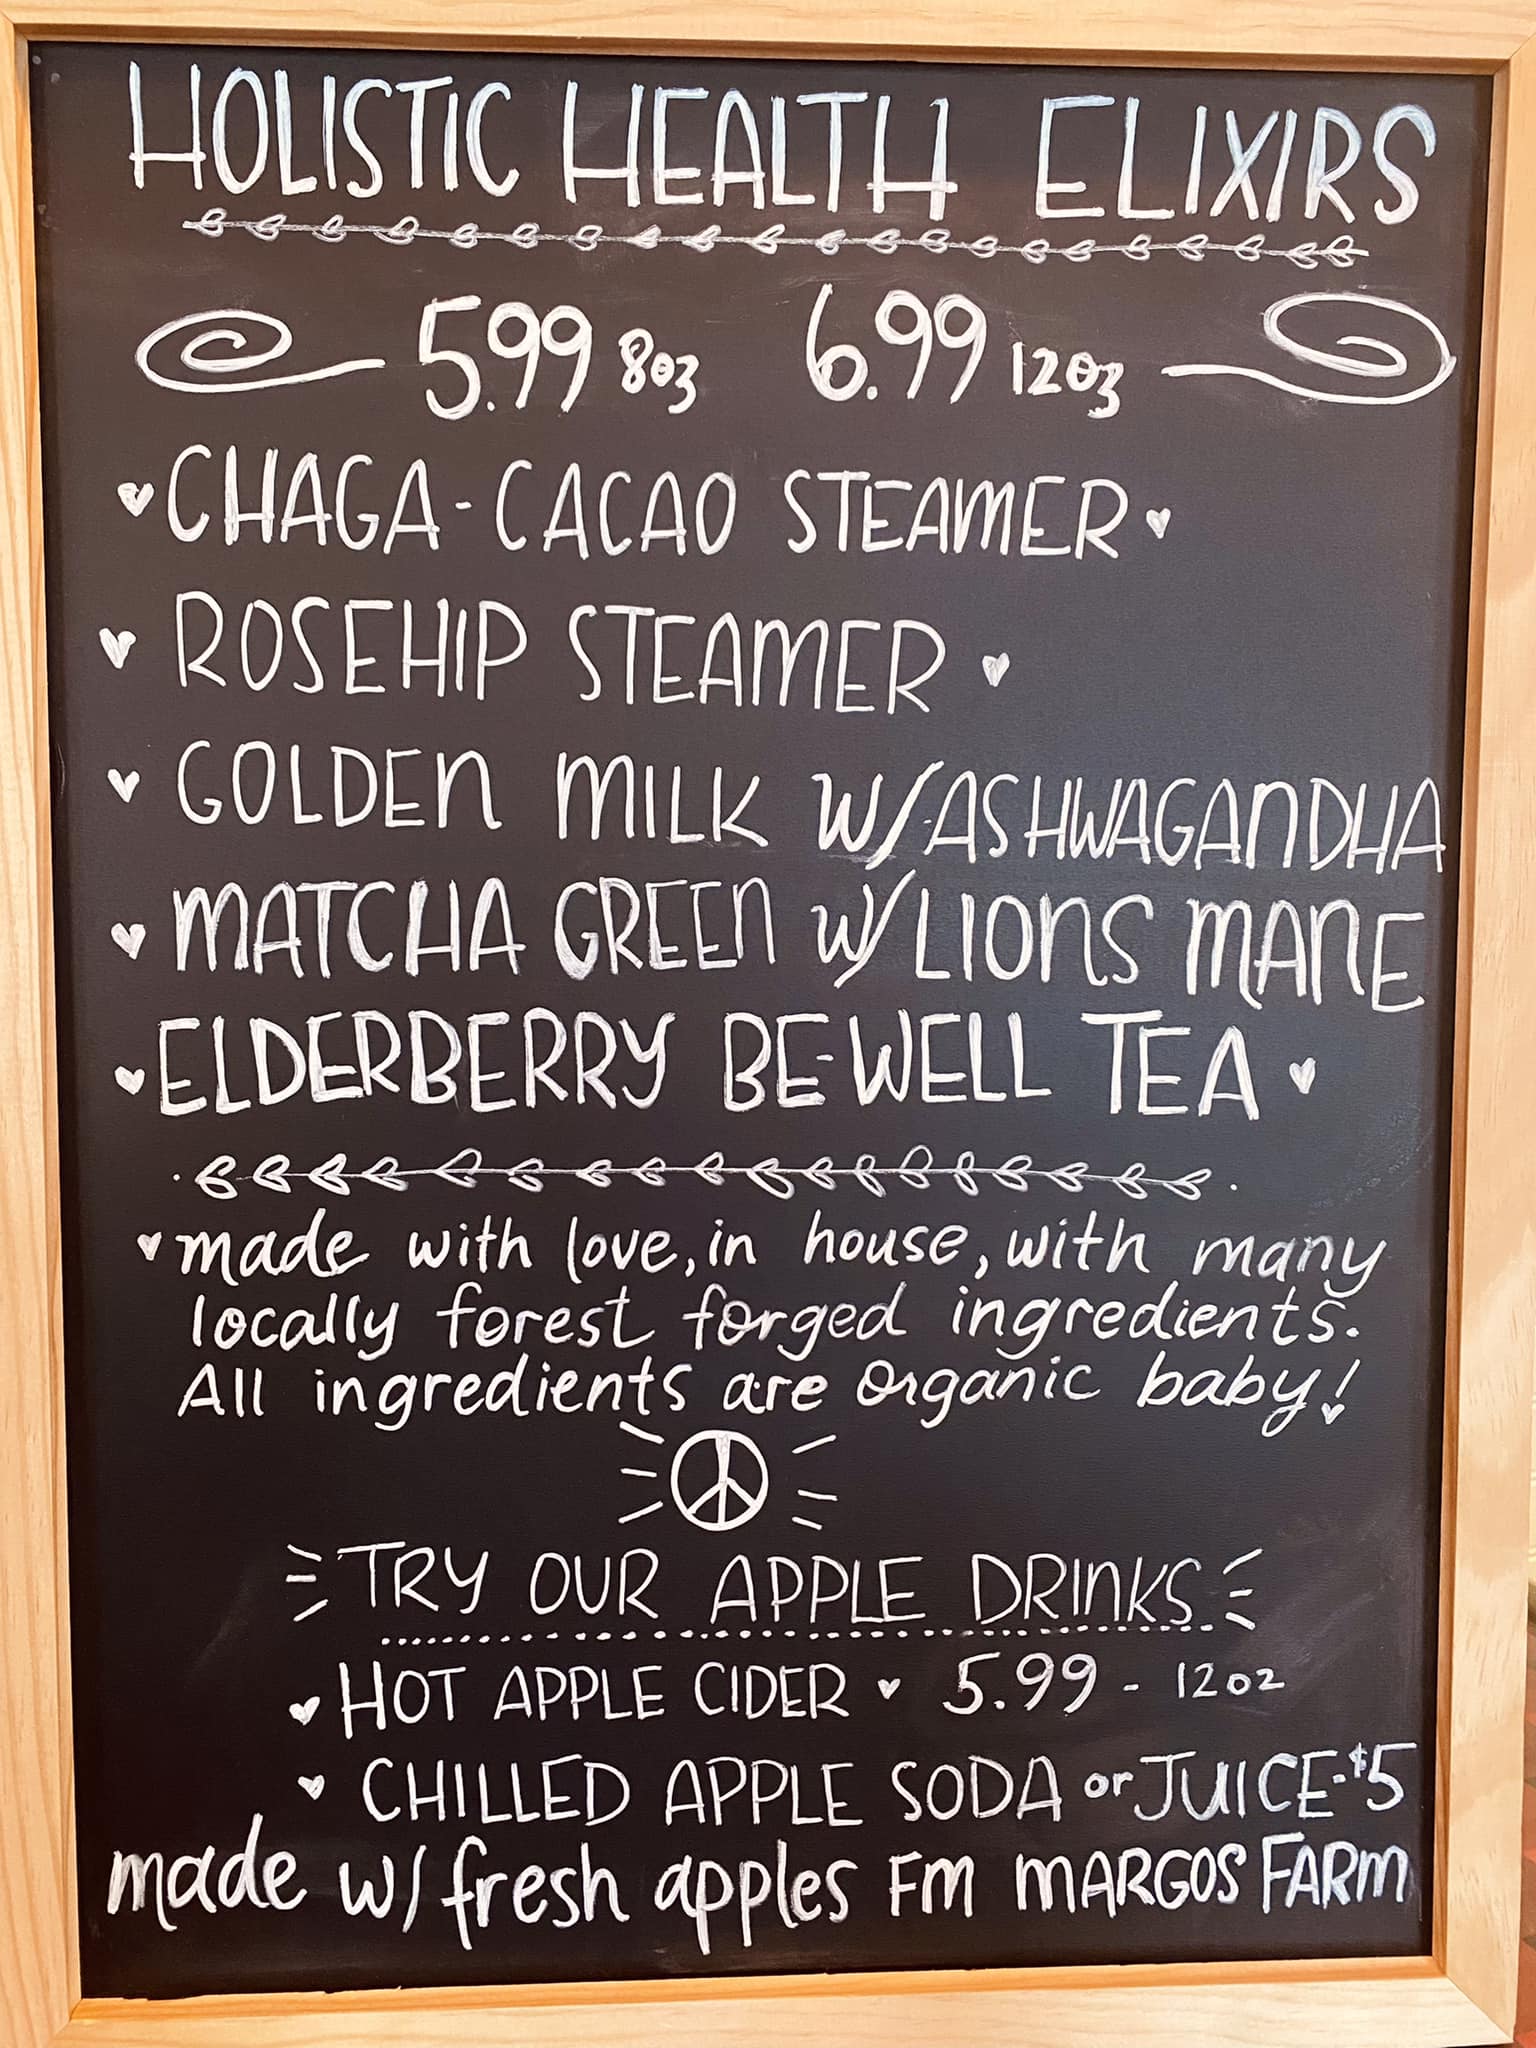 HOLISTIC HEALTH ELIXIRS
5.99 8oz 6.99 12oz
CHAGA-CACAO STEAMER
ROSEHIP STEAMER
GOLDEN MILK W/ASHWAGANDHA
MATCHA GREEN W/LIONS MANE
ELDERBERRY BE-WELL TEA
made with love, in house, with many
locally forest forged ingredients.
All ingredients are organic baby!
TRY OUR APPLE DRINKS
HOT APPLE CIDER 5.99 - 12oz
CHILLED APPLE SODA or JUICE-$5
made w/ fresh apples FM MARGOS FARM